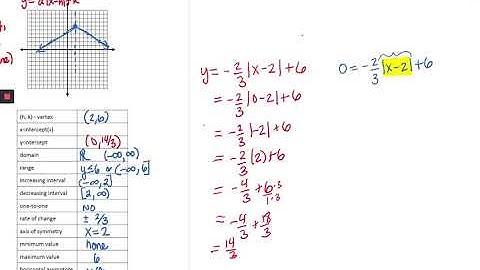 y = a|x-h|+k
(h, k) - vertex (2,6)
x-intercept(s)
y-intercept (0, 14/3)
domain ℝ (-∞,∞)
range y≤6 or (-∞, 6]
increasing interval (-∞, 2]
decreasing interval [2, ∞)
one-to-one NO
rate of change ± 2/3
axis of symmetry x=2
minimum value none
maximum value 6
horizontal asymptote
y = -2/3 |x-2|+6
= -2/3 |0-2|+6
= -2/3 |-2|+6
= -2/3 (2)+6
= -4/3 + 6·3/1·3
= -4/3 + 18/3
= 14/3
0 = -2/3 |x-2| +6